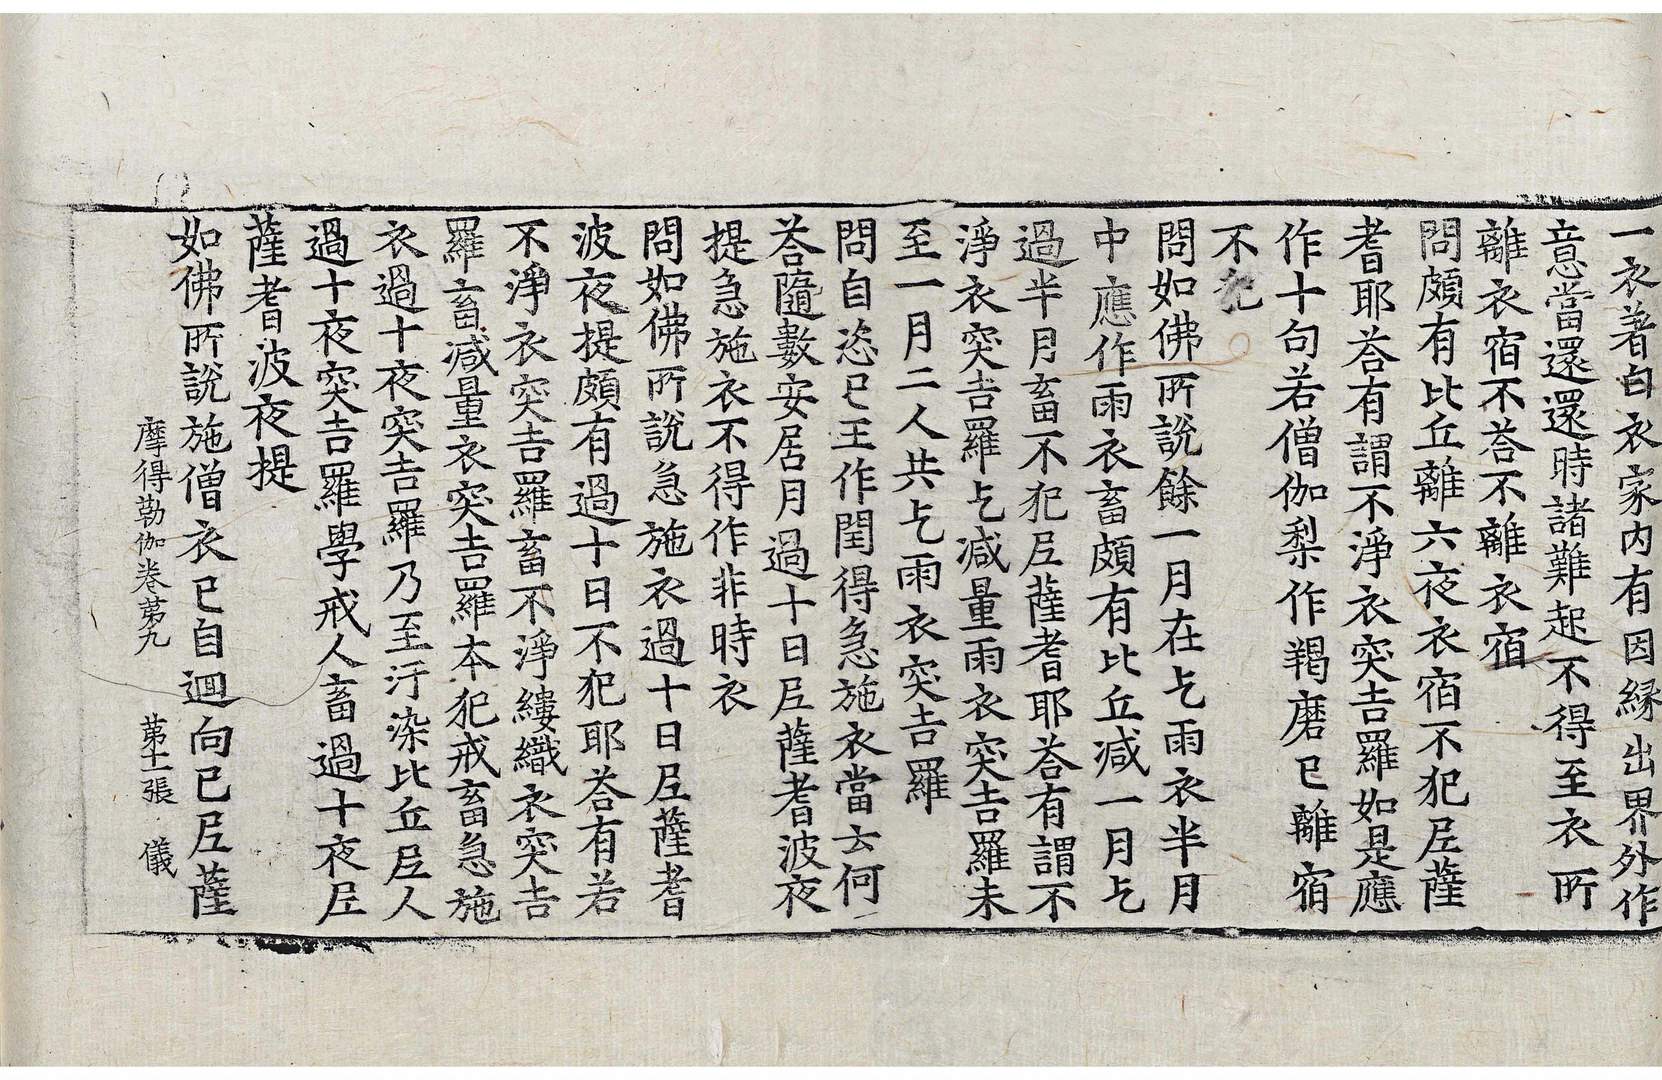 一衣著白衣家内有因緣出界外作
意當還還時諸難起不得至衣所
離衣宿不荅不離衣宿
問頗有比丘離六夜衣宿不犯尼薩
耆耶荅有謂不淨衣突吉羅如是應
作十句若僧伽梨作羯磨已離宿
不犯
問如佛所說餘一月在乞雨衣半月
中應作雨衣畜頗有比丘减一月乞
過半月畜不犯尼薩耆耶荅有謂不
淨衣突吉羅乞减量雨衣突吉羅未
至一月二人共乞雨衣突吉羅
問自恣已王作閏得急施衣當云何
荅隨數安居月過十日尼薩耆波夜
提急施衣不得作非時衣
問如佛所說急施衣過十日尼薩耆
波夜提頗有過十日不犯耶荅有若
不淨衣突吉羅畜不淨縷織衣突吉
羅畜减量衣突吉羅本犯戒畜急施
衣過十夜突吉羅乃至汙染比丘尼人
過十夜突吉羅學戒人畜過十夜尼
薩耆波夜提
如佛所說施僧衣已自迴向已尼薩
摩得勒伽卷第九 第十一張 儀